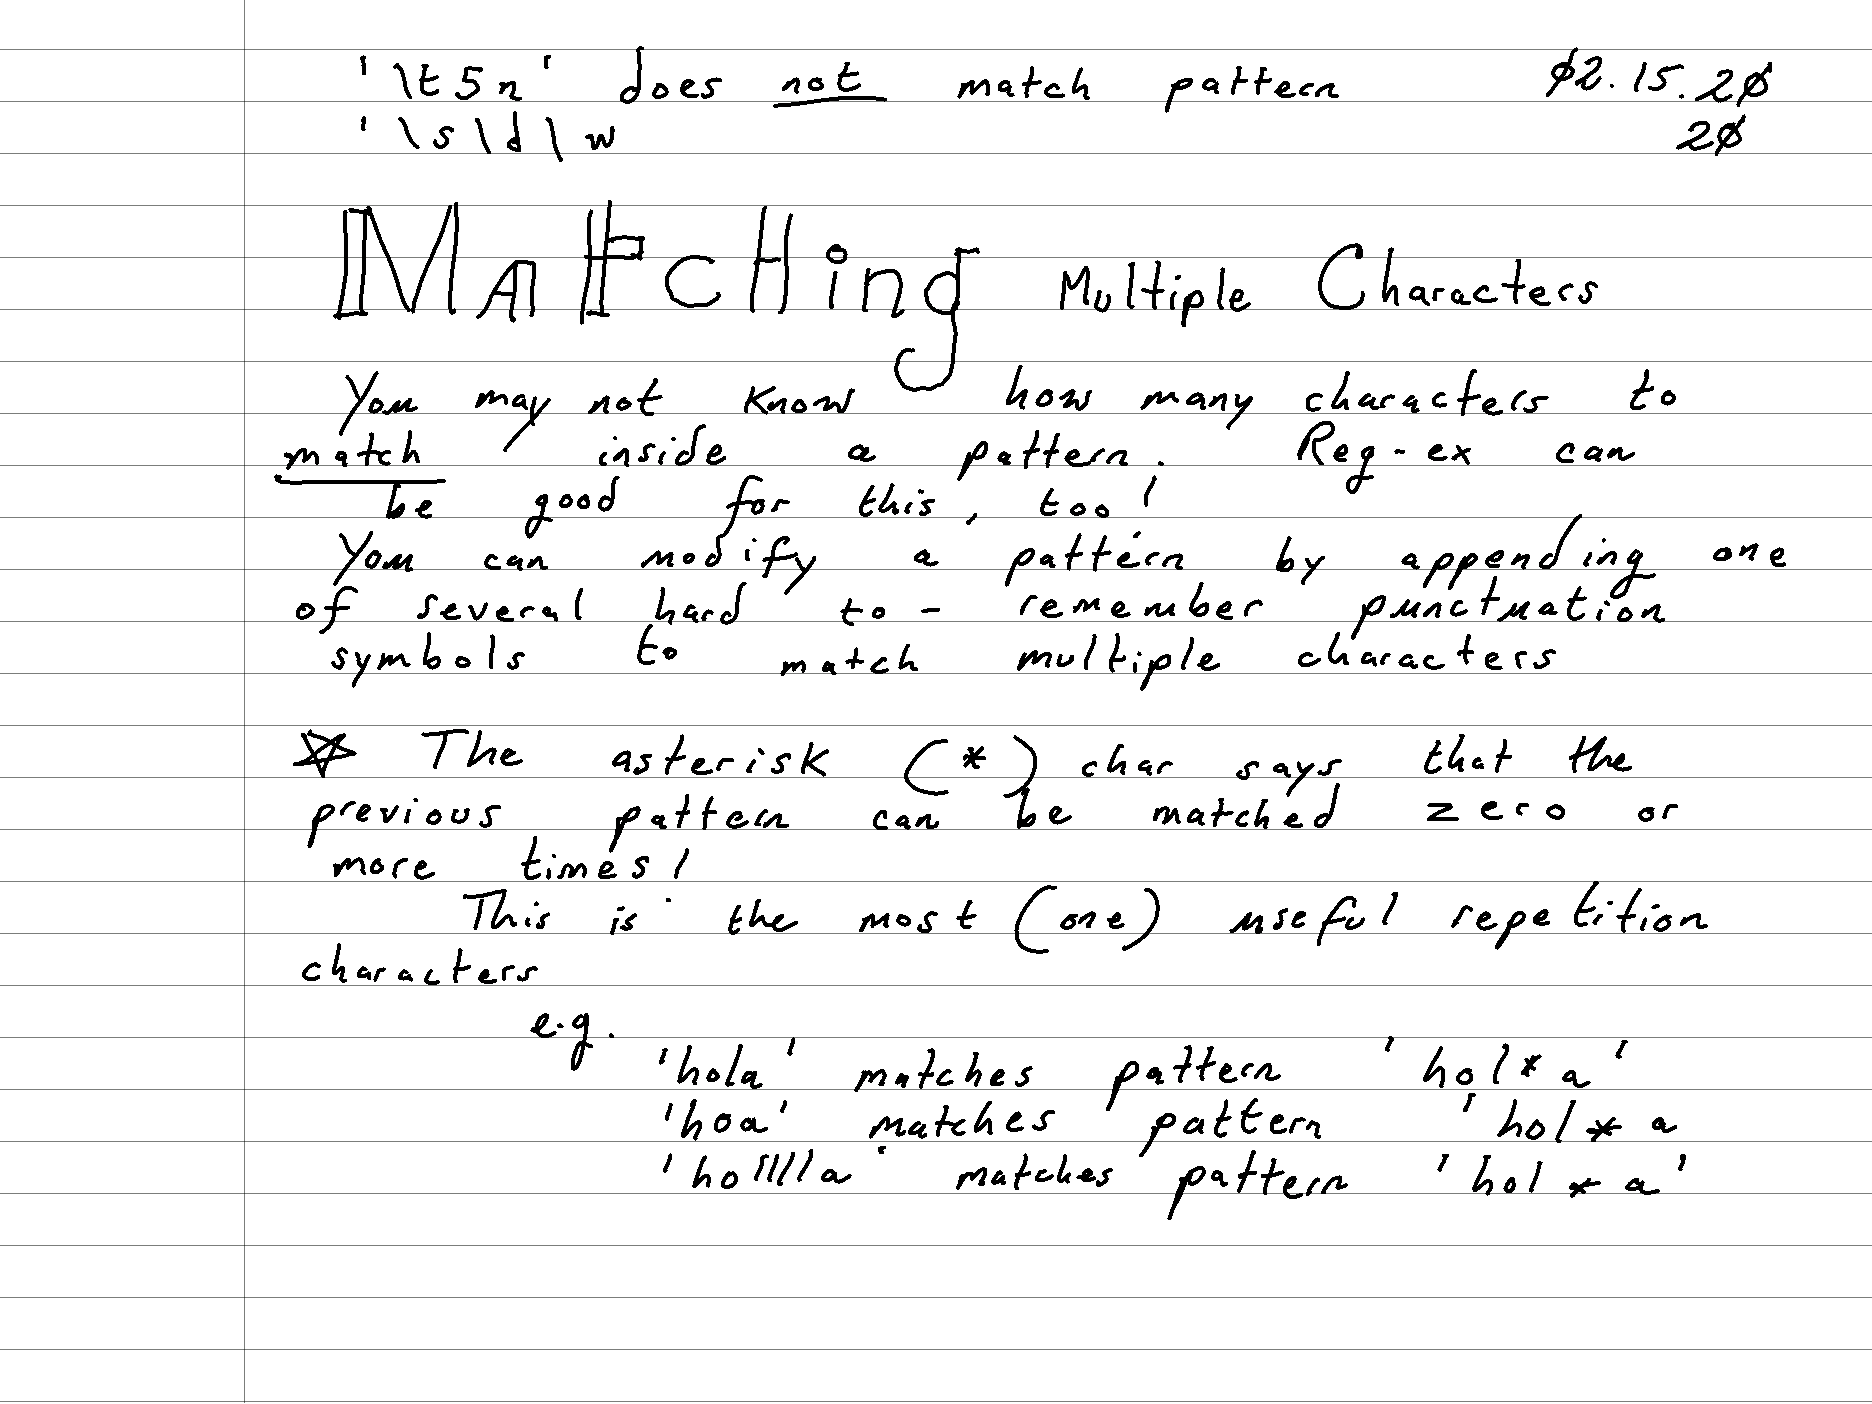 '\t5n' does not match pattern 02.15.20
'\s\d\w 20
Matching Multiple Characters
You may not know how many characters to
match inside a pattern. Reg-ex can
be good for this, too!
You can modify a pattern by appending one
of several hard to- remember punctuation
symbols to match multiple characters
☆ The asterisk (*) char says that the
previous pattern can be matched zero or
more times!
This is the most (one) useful repetition
characters
e.g.
'hola' matches pattern 'hol*a'
'hoa' matches pattern 'hol*a
'hollllla' matches pattern 'hol*a'